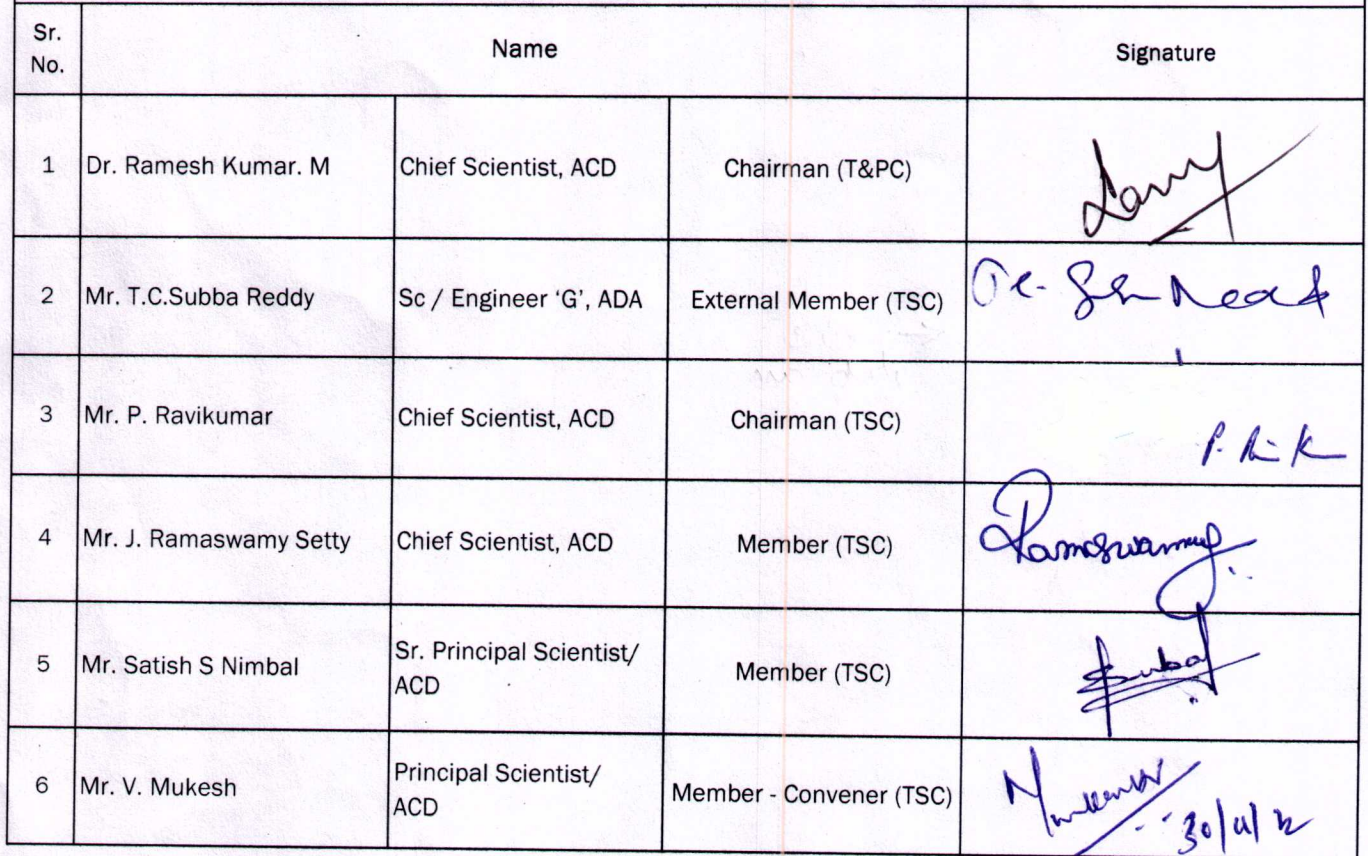 Sr.
No.
Name
Signature
1 Dr. Ramesh Kumar. M Chief Scientist, ACD Chairman (T&PC)
2 Mr. T.C.Subba Reddy Sc / Engineer ‘G’, ADA External Member (TSC)
3 Mr. P. Ravikumar Chief Scientist, ACD Chairman (TSC)
4 Mr. J. Ramaswamy Setty Chief Scientist, ACD Member (TSC) Ramaswamy
5 Mr. Satish S Nimbal Sr. Principal Scientist/
ACD Member (TSC)
6 Mr. V. Mukesh Principal Scientist/
ACD Member - Convener (TSC)